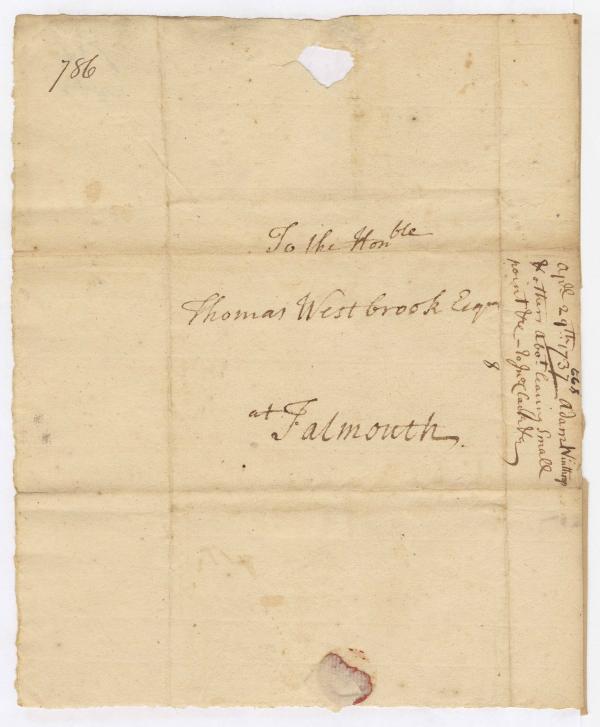 786
To the Honble
Thomas Westbrook Esqr
8
at Falmouth
Apll 29th 1737 Adam Winthrop
668
& others abot leaving Small
point &c - to Clark &c